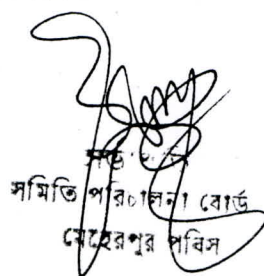 সমিতি পরিচালনা বোর্ড
মেহেরপুর পবিস